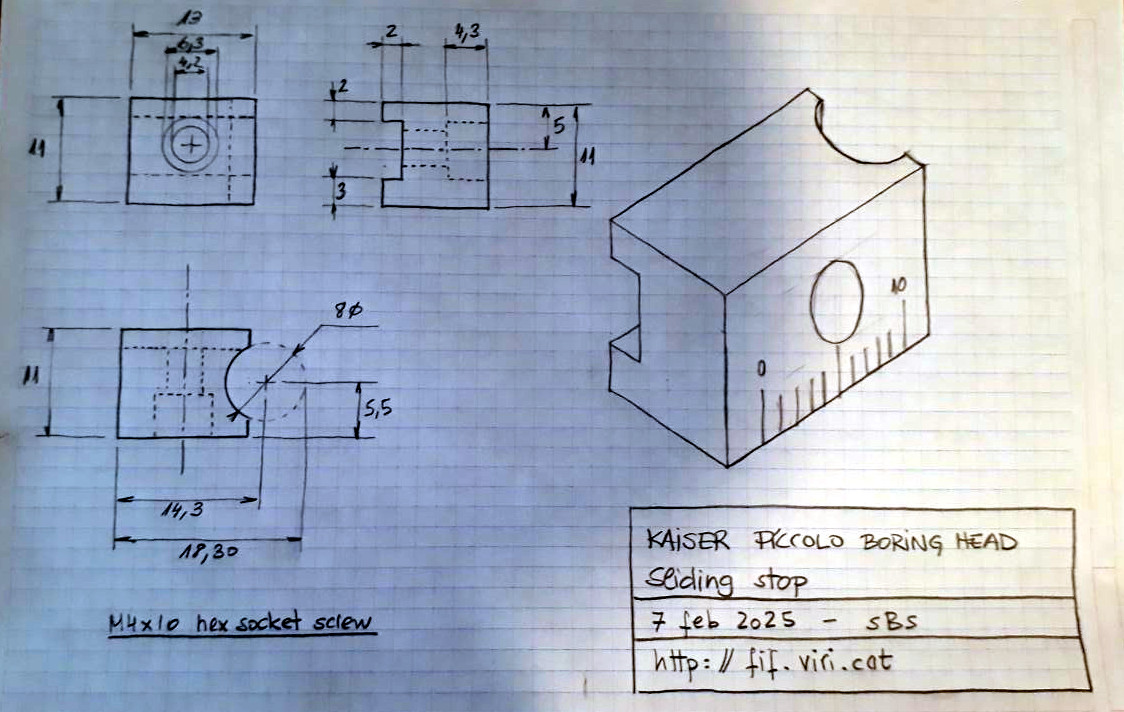 13
6,3
4,2
11
2
4,3
2
5
11
3
8φ
11
5,5
14,3
18,30
0
10
M4x10 hex socket sclew
KAISER PICCOLO BORING HEAD
Sliding stop
7 feb 2025 - SBS
http://fif.viri.cat